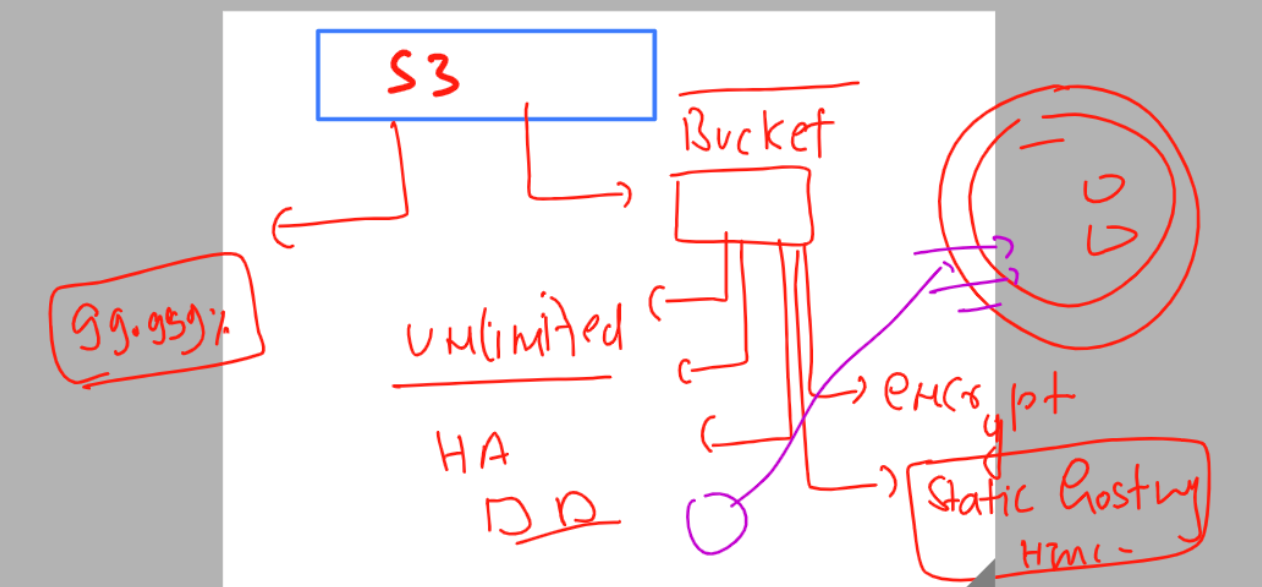 S3
Bucket
99.999%
Unlimited
encrypt
HA
Static Hosting
HTML